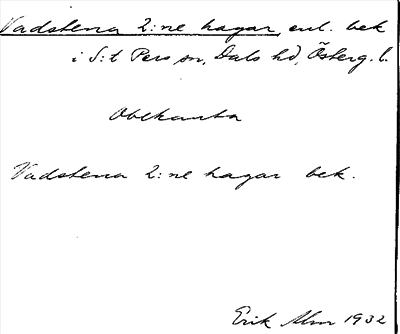 Vadstena 2:ne hagar, enl. bek
i S:t Pers sn, Dals hd, Österg. l.
Obekanta
Vadstena 2:ne hagar bek.
Erik Alm 1932